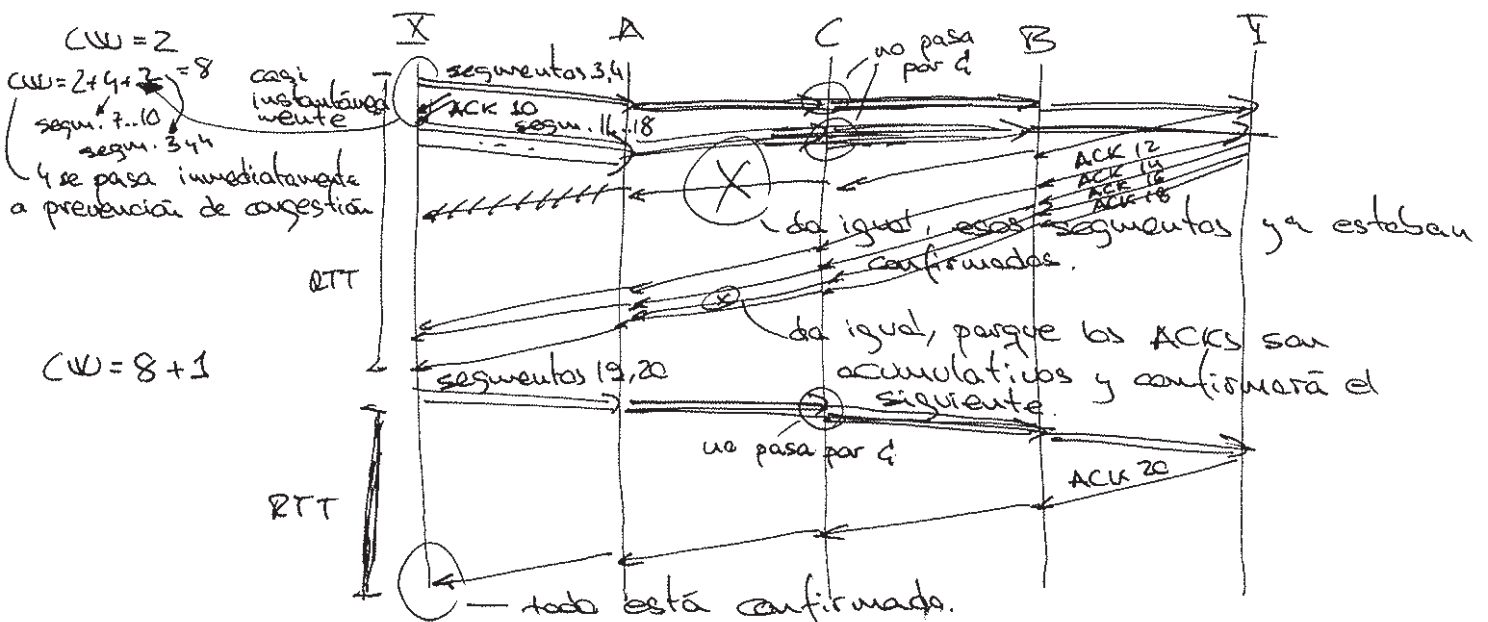 CW = 2
X A C B Y
CW = 2+4+2 = 8
segm. 7..10
segm. 3 y 4
y se pasa inmediatamente
a prevención de congestión
casi
instantánea
mente
segmentos 3,4
ACK 10
segm. 11..18
no pasa
por C
ACK 12
ACK 14
ACK 16
ACK 18
X
da igual, esos segmentos ya estaban
confirmados.
RTT
x
da igual, porque los ACKs son
acumulativos y confirmará el
siguiente.
CW = 8 + 1
segmentos 19,20
no pasa por C
ACK 20
RTT
todo está confirmado.